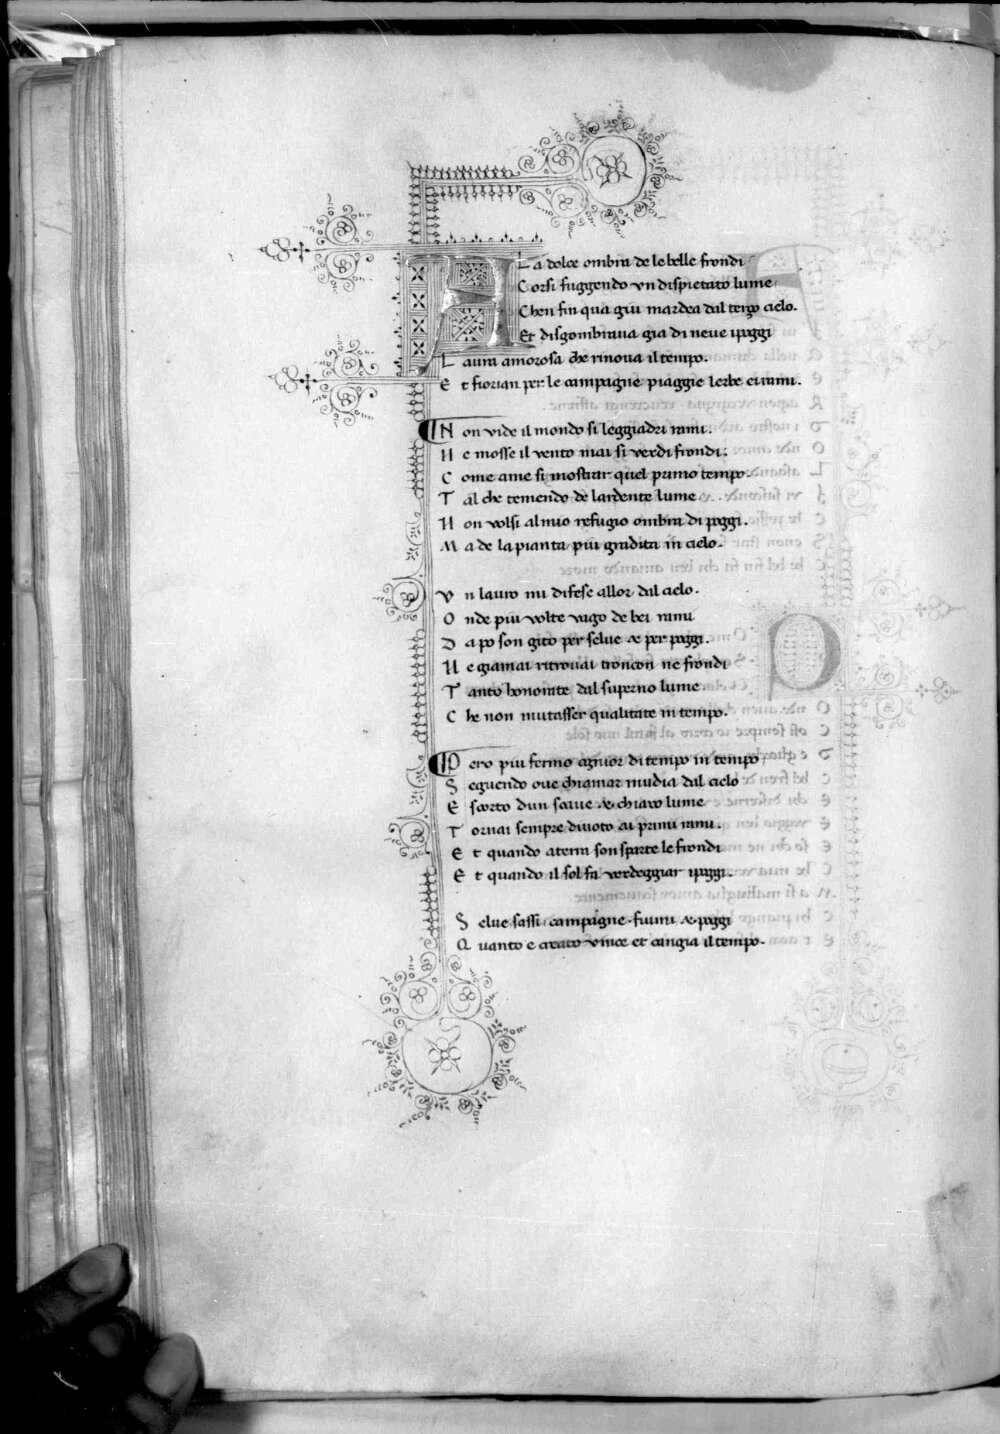 A La dolce ombra de le belle frondi
Corsi fuggendo vn dispietato lume
Chen fin qua giu mardea dal terzo cielo.
Et disgombraua gia di neue i poggi
L aura amorosa che rinoua il tempo.
E t fiorian per le campagne piaggie lerbe ei rami.
N on vide il mondo si leggiadri rami.
N e mosse il vento mai si verdi frondi:
C ome ame si mostrar quel primo tempo
T al che temendo de lardente lume
N on volsi al mio refugio ombra di poggi.
M a de la pianta piu gradita in cielo.
V n lauro mi difese allor dal cielo.
O nde piu volte vago de bei rami
D a po son gito per selue & per poggi.
N e giamai ritrouai troncon ne frondi
T anto honorate dal superno lume
C he non mutasser qualitate in tempo.
P ero piu fermo ognior di tempo in tempo
S eguendo oue chiamar mudia dal cielo
E scorto dun soaue & chiaro lume
T ornai sempre diuoto ai primi rami.
E t quando a terra son sparte le frondi
E t quando il sol fa verdeggiar i poggi.
S elue sassi campagne fiumi & poggi
Q uanto e creato vince et cangia il tempo.